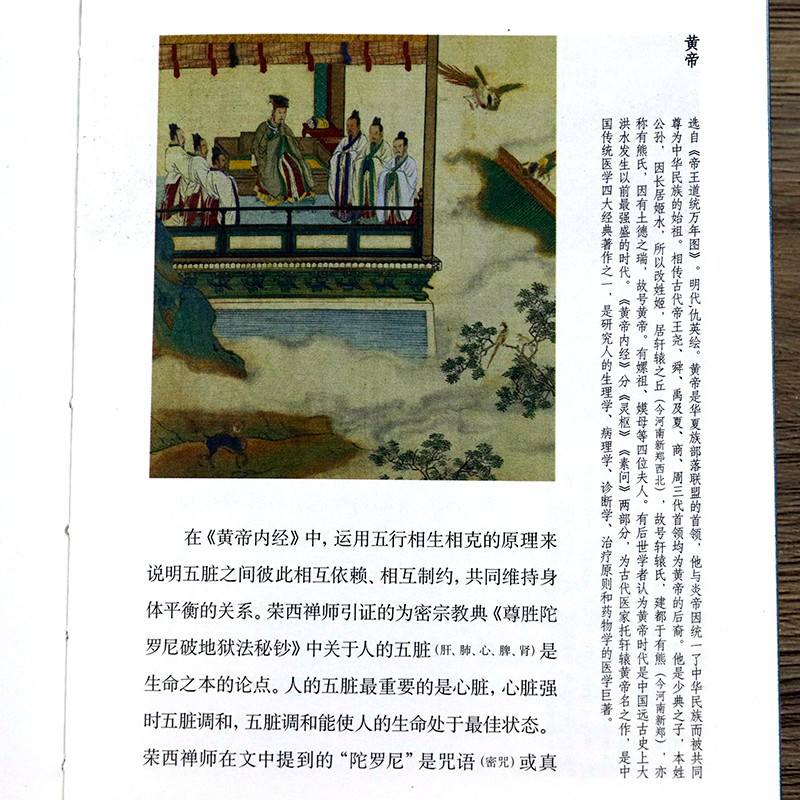 黄帝
选自《帝王道统万年图》。明代,仇英绘。黄帝是华夏族部落联盟的首领,他与炎帝因统一了中华民族而被共同
尊为中华民族的始祖。相传古代帝王尧、舜、禹及夏、商、周三代首领均为黄帝的后裔。他是少典之子,本姓
公孙,因长居姬水,所以改姓姬,居轩辕之丘(今河南新郑西北),故号轩辕氏,建都于有熊(今河南新郑),亦
称有熊氏,因有土德之瑞,故号黄帝。有嫘祖、嫫母等四位夫人。有后世学者认为黄帝时代是中国远古史上大
洪水发生以前最强盛的时代。《黄帝内经》分《灵枢》《素问》两部分,为古代医家托轩辕黄帝名之作,是中
国传统医学四大经典著作之一,是研究人的生理学、病理学、诊断学、治疗原则和药物学的医学巨著。
在《黄帝内经》中,运用五行相生相克的原理来
说明五脏之间彼此相互依赖、相互制约,共同维持身
体平衡的关系。荣西禅师引证的为密宗教典《尊胜陀
罗尼破地狱法秘钞》中关于人的五脏(肝、肺、心、脾、肾)是
生命之本的论点。人的五脏最重要的是心脏,心脏强
时五脏调和,五脏调和能使人的生命处于最佳状态。
荣西禅师在文中提到的“陀罗尼”是咒语(密咒)或真